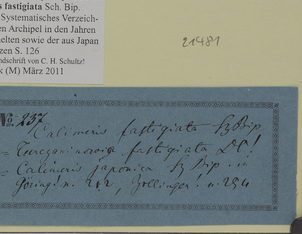 s fastigiata Sch. Bip.
Systematisches Verzeich-
en Archipel in den Jahren
elten sowie der aus Japan
zen S. 126
ndschrift von C. H. Schultz!
k (M) März 2011
21481
No. 237.
Calimeris fastigiata Sz Bip
= Turczaninowia fastigiata DC!
= Calimeris japonica Sz Bip. in
Göring! n. 212, Zollinger! n. 254